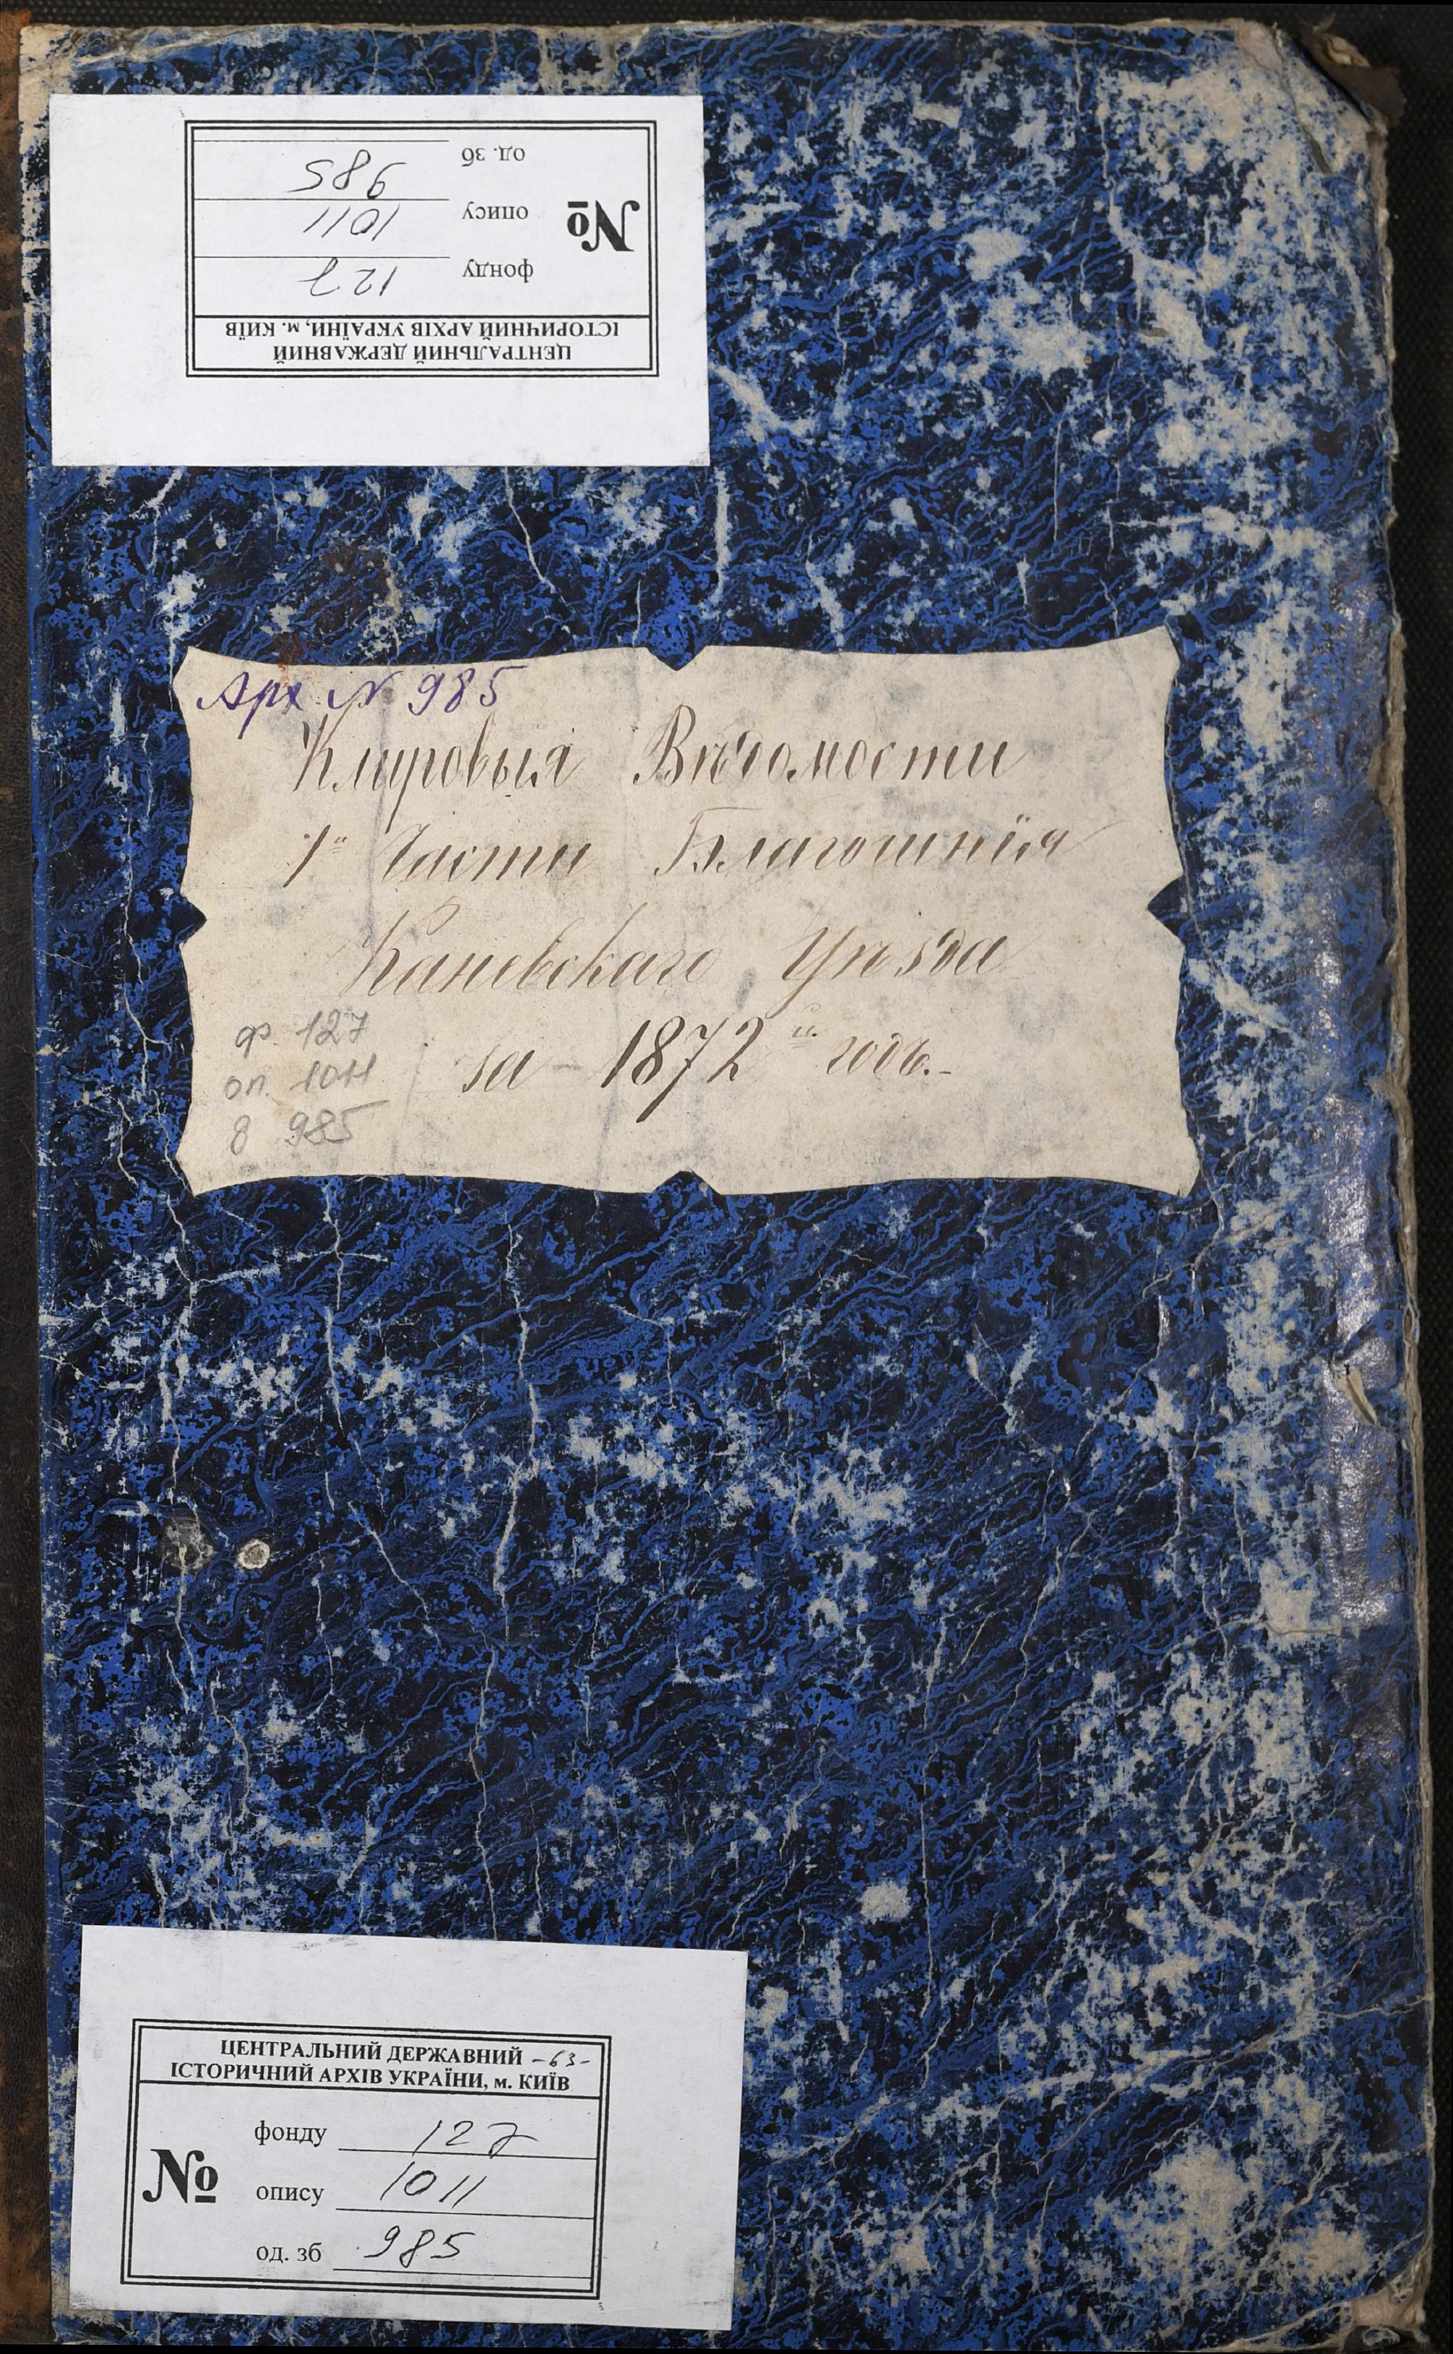 ЦЕНТРАЛЬНИЙ ДЕРЖАВНИЙ
ІСТОРИЧНИЙ АРХІВ УКРАЇНИ, м. КИЇВ
№
фонду 127
опису 1011
од. зб 985
Арх № 985
Клировыя Вѣдомости
1й Части Благочинія
Каневскаго Уѣзда
за 1872й годъ.
ф. 127
оп. 1011
8 985
ЦЕНТРАЛЬНИЙ ДЕРЖАВНИЙ -63-
ІСТОРИЧНИЙ АРХІВ УКРАЇНИ, м. КИЇВ
№
фонду 127
опису 1011
од. зб 985